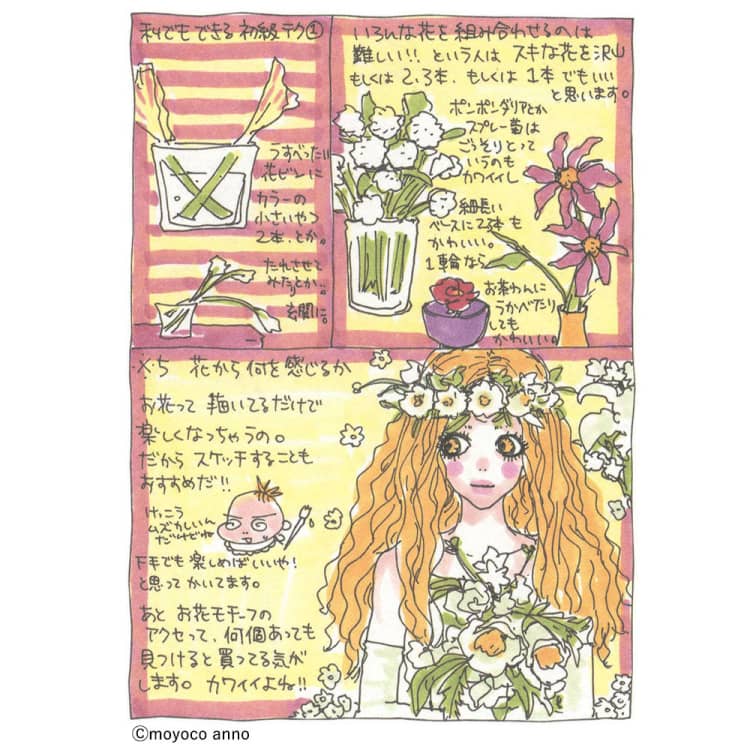 私でもできる初級テク①
うすべったい
花ビンに
カラーの
小さいやつ
2本、とか。
たれさせて
みたりとか…
玄関に。
いろんな花を組み合わせるのは
難しい!! という人は スキな花を沢山
もしくは 2、3本、もしくは 1本 でもいい
と思います。
ポンポンダリアとか
スプレー菊は
ごっそりとって
いうのも
カワイイし
細長い
ベースに2、3本も
かわいい。
1輪なら
お茶わんに
うかべたり
しても
かわいい。
花から何を感じるか
お花って 描いてるだけで
楽しくなっちゃうの。
だから スケッチすることも
おすすめだ!!
けっこう
ムズかしいん
だけどね
下手でも楽しめばいいや!
と思って かいてます。
あと お花モチーフの
アクセって、何個あっても
見つけると買ってる気が
します。 カワイイよね!!
©moyoco anno